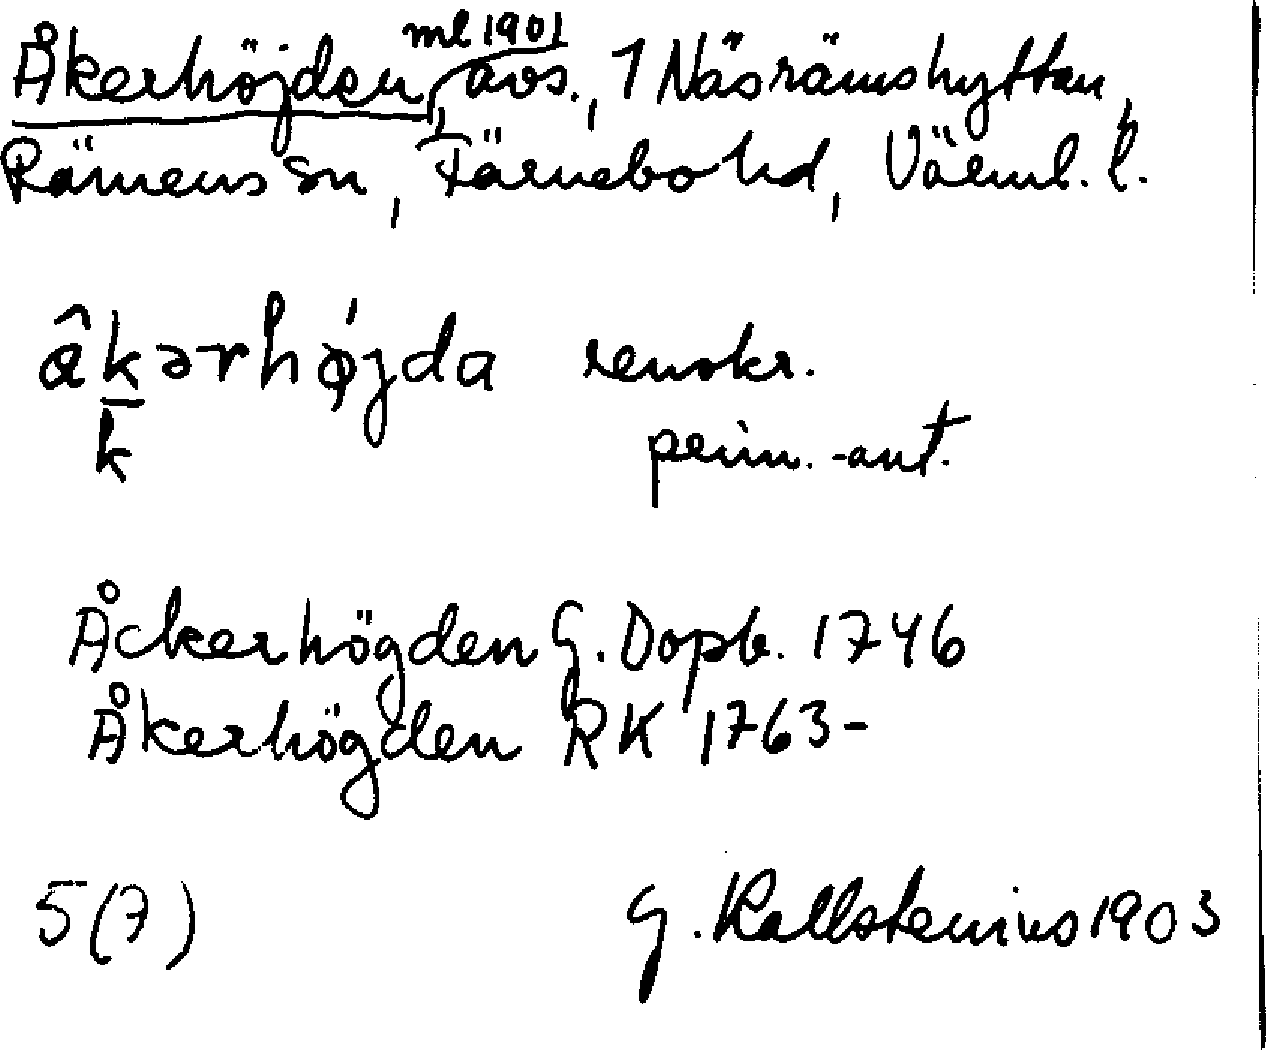 ml 1901
Åkerhöjden, avs., 1 Näsrämshyttan,
Rämens sn, Färnebo hd, Värml. l.
âkərhǿjda renskr.
k prim.-ant.
Åckerhögden G. Dopb. 1746
Åkerhögden RK 1763-
5(7) G. Kallstenius 1903